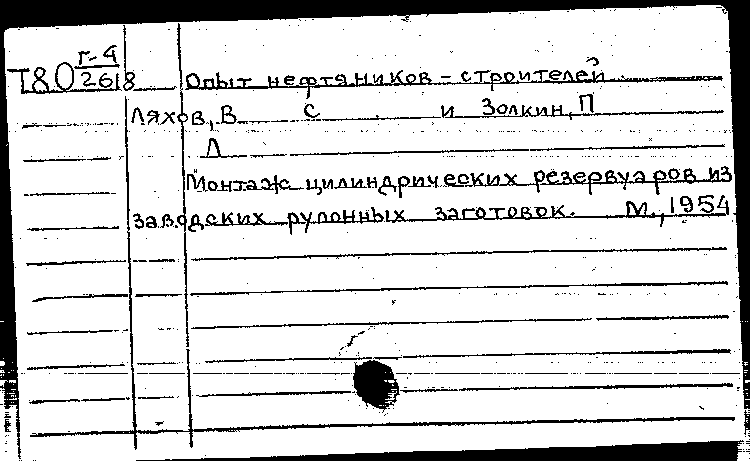 Г-4
Т80 2618 Опыт нефтяников - строителей
Ляхов, В С и Золкин, П
Л
Монтаж цилиндрических резервуаров из
заводских рулонных заготовок. М., 1954